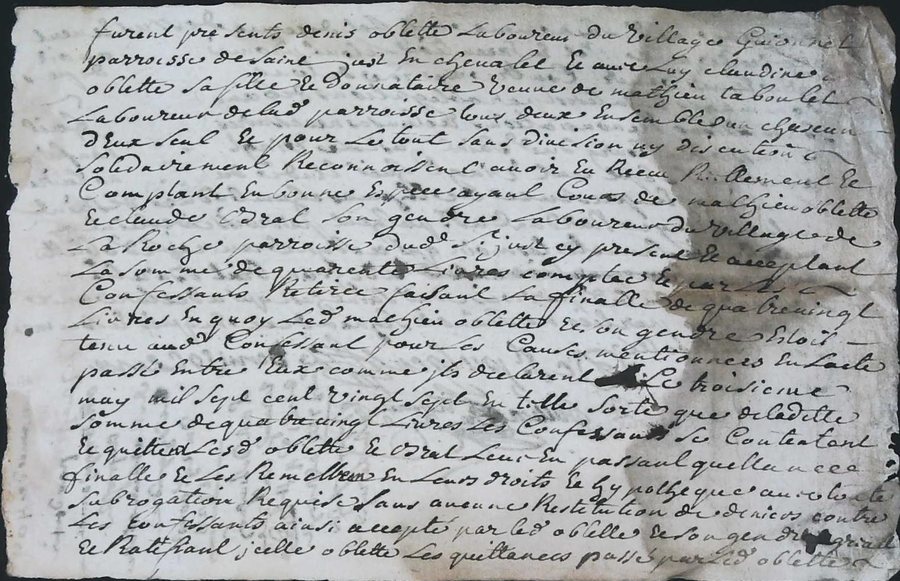 furent presents denis oblette Laboureur du village Guionnet
parroisse de saint just En chevalet Et avec Luy claudine
oblette sa fille Et donnataire veuve de mathieu taboulet
Laboureur de lad parroisse tous deux Ensemble dun chascun
d'Eux seul Et pour Le tout sans division ny discution
solidairement Reconnoissent avoir Eu Receu Réellement Et
Comptant En bonne Espece ayant Cours de mathieu oblette
Et claude son gendre Laboureur du village de
La Roche parroisse dud St just cy present Et acceptant
La somme de quarente Livres comptée Et par Les
Confessants Retirée faisant La finalle de quatrevingt
Livres En quoy Led mathieu oblette Et son gendre Etoit
tenu aud Confessant pour Les Causes mentionnées En Lacte
passé Entre Eux comme jls declarent Le troisieme
may mil sept cent vingt sept En telle sorte que de laditte
somme de quatrevingt Livres Les Confessants se Contentent
Et quittent Lesd oblette Et Leur En passant quettance
finalle Et Les Remettant En Leurs droits Et hypotheque avec toute
subrogation Requise sans aucune Restitution de deniers contre
Les Confessants ainsi accepté par led oblette Et son gendre
Et Ratifiant jcelle oblette Les quettances passé par Led oblette